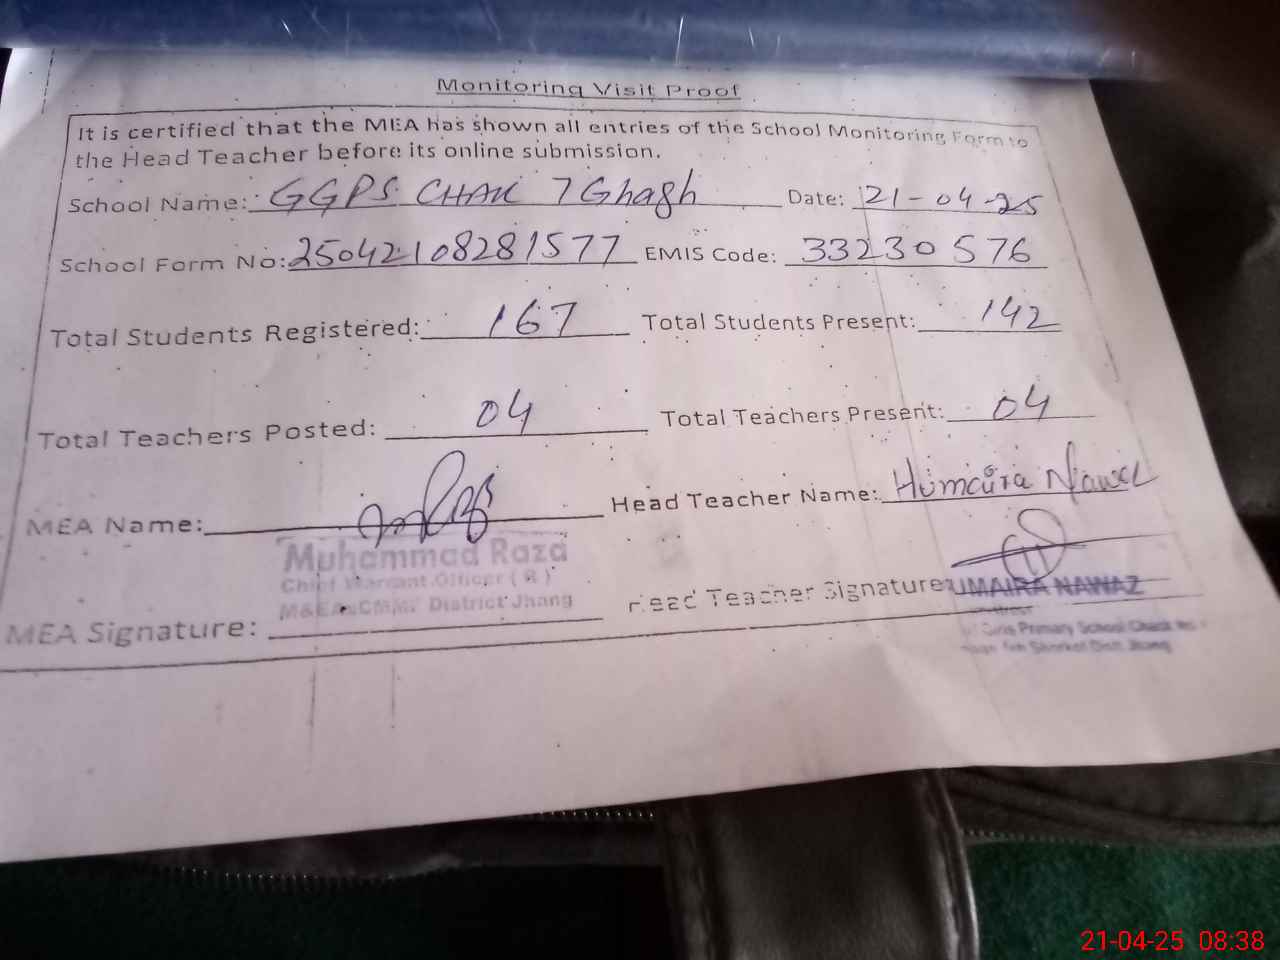 Monitoring Visit Proof
It is certified that the MEA has shown all entries of the School Monitoring Form to
the Head Teacher before its online submission.
School Name: GGPS CHAK 7 Ghagh Date: 21-04-25
School Form No: 25042108281577 EMIS Code: 33230576
Total Students Registered: 167 Total Students Present: 142
Total Teachers Posted: 04 Total Teachers Present: 04
MEA Name: Head Teacher Name: Humaira Nawaz
Muhammad Raza
Chief Warrant Officer (R)
M&EA District Jhang
MEA Signature: Head Teacher Signature: UMAIRA NAWAZ
Girls Primary School Chack No
Shorkot Distt. Jhang
21-04-25 08:38